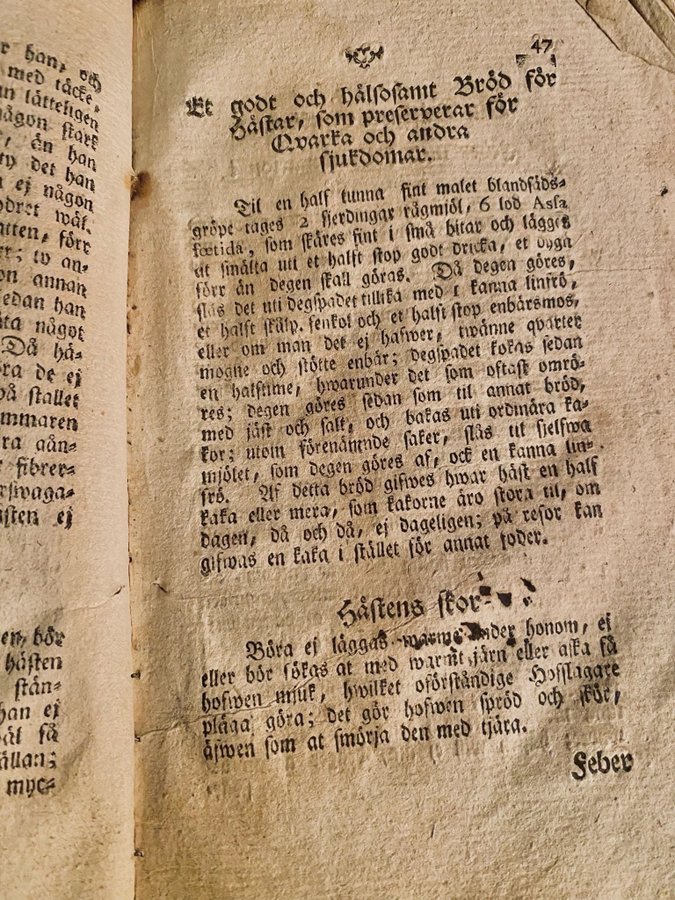 r han, och
med täcke,
an lätteligen
någon stark
, än han
ty det han
a ej någon
ndret wäl.
atten, förr
er; ty an-
on annan
sedan han
åta något
Då hä-
ra de ej
på stallet
mmaren
ra gån-
fibrer-
rswaga-
ästen ej
en, bör
hästen
stän-
han ej
äl få
ällan;
myc-
47
Et godt och hälsosamt Bröd för
Hästar, som preserverar för
Qvarka och andra
sjukdomar.
Til en half tunna fint malet blandsäds-
gröpe tages 2 fjerdingar rågmjöl, 6 lod Assa
foetida, som skäres fint i små bitar och lägges
at smälta uti et halft stop godt dricka, et dygn
förr än degen skall göras. Då degen göres,
slås det uti degspadet tillika med 1 kanna linfrö,
et halft skålp. senkol och et halft stop enbärsmos,
eller om man det ej hafwer, twänne qvarter
mogne och stötte enbär; degspadet kokas sedan
en halftime, hwarunder det som oftast omrö-
res; degen göres sedan som til annat bröd,
med jäst och salt, och bakas uti ordinära ka-
kor; utom förenämnde saker, slås til sjelfwa
mjölet, som degen göres af, ock en kanna lin-
frö. Af detta bröd gifwes hwar häst en half
kaka eller mera, som kakorne äro stora til, om
dagen, då och då, ej dageligen; på resor kan
gifwas en kaka i stället för annat foder.
Hästens skor
Böra ej läggas warme under honom, ej
eller bör sökas at med warmt järn eller aska få
hofwen mjuk, hwilket oförståndige Hofslagare
pläga göra; det gör hofwen spröd och skör,
äfwen som at smörja den med tjära.
Feber